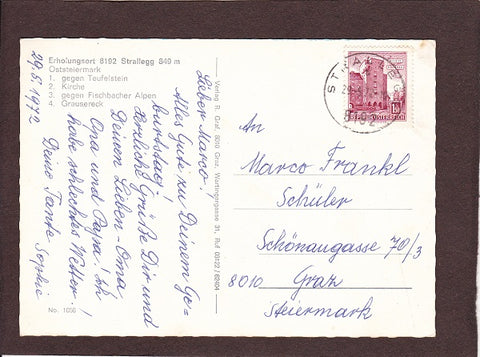 Erholungsort 8192 Strallegg 849 m
Oststeiermark
1. gegen Teufelstein
2. Kirche
3. gegen Fischbacher Alpen
4. Grausereck
29.5.1972
Lieber Marco!
Alles Gute zu Deinem Ge-
burtstag!
Herzliche Grüße Dir und
Deinen Lieben - Oma,
Opa und Papa! Ich
habe schlechtes Wetter!
Deine Tante Sophie
No. 1056
Verlag R. Graf, 8020 Graz, Wartingergasse 31, Ruf 03122/62604
STRALLEGG
8192
REPUBLIK ÖSTERREICH
An
Marco Frankl
Schüler
Schönaugasse 70/3
8010 Graz
Steiermark